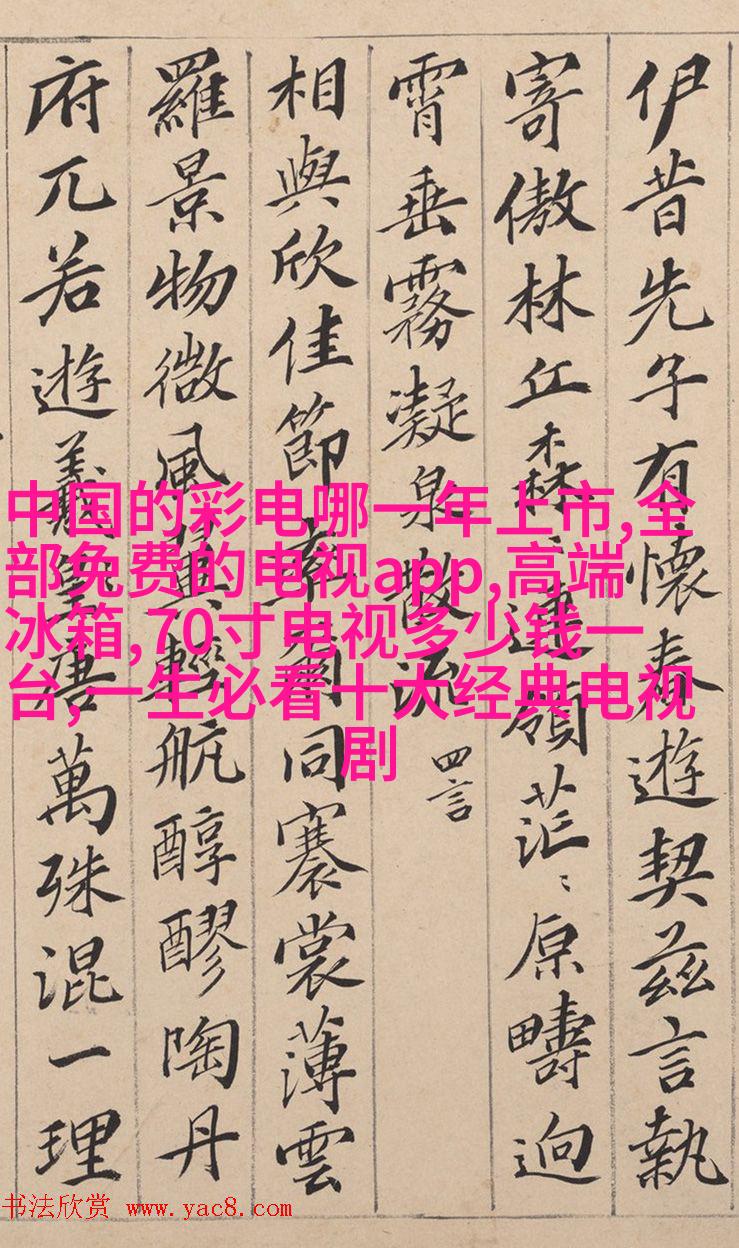 伊昔先子有懷春遊契茲言執
寄傲林丘森〻連嶺茫〻原疇迥
霄垂霧凝泉散流 四言
相與欣佳節率爾同褰裳薄雲
羅景物微風翼輕航醇醪陶丹
府兀若遊羲皇唐萬殊混一理
中国的彩电哪一年上市,全
部免费的电视app,高端
冰箱,70寸电视多少钱一
台,一生必看十大经典电视
剧
书法欣赏 www.yac8.com